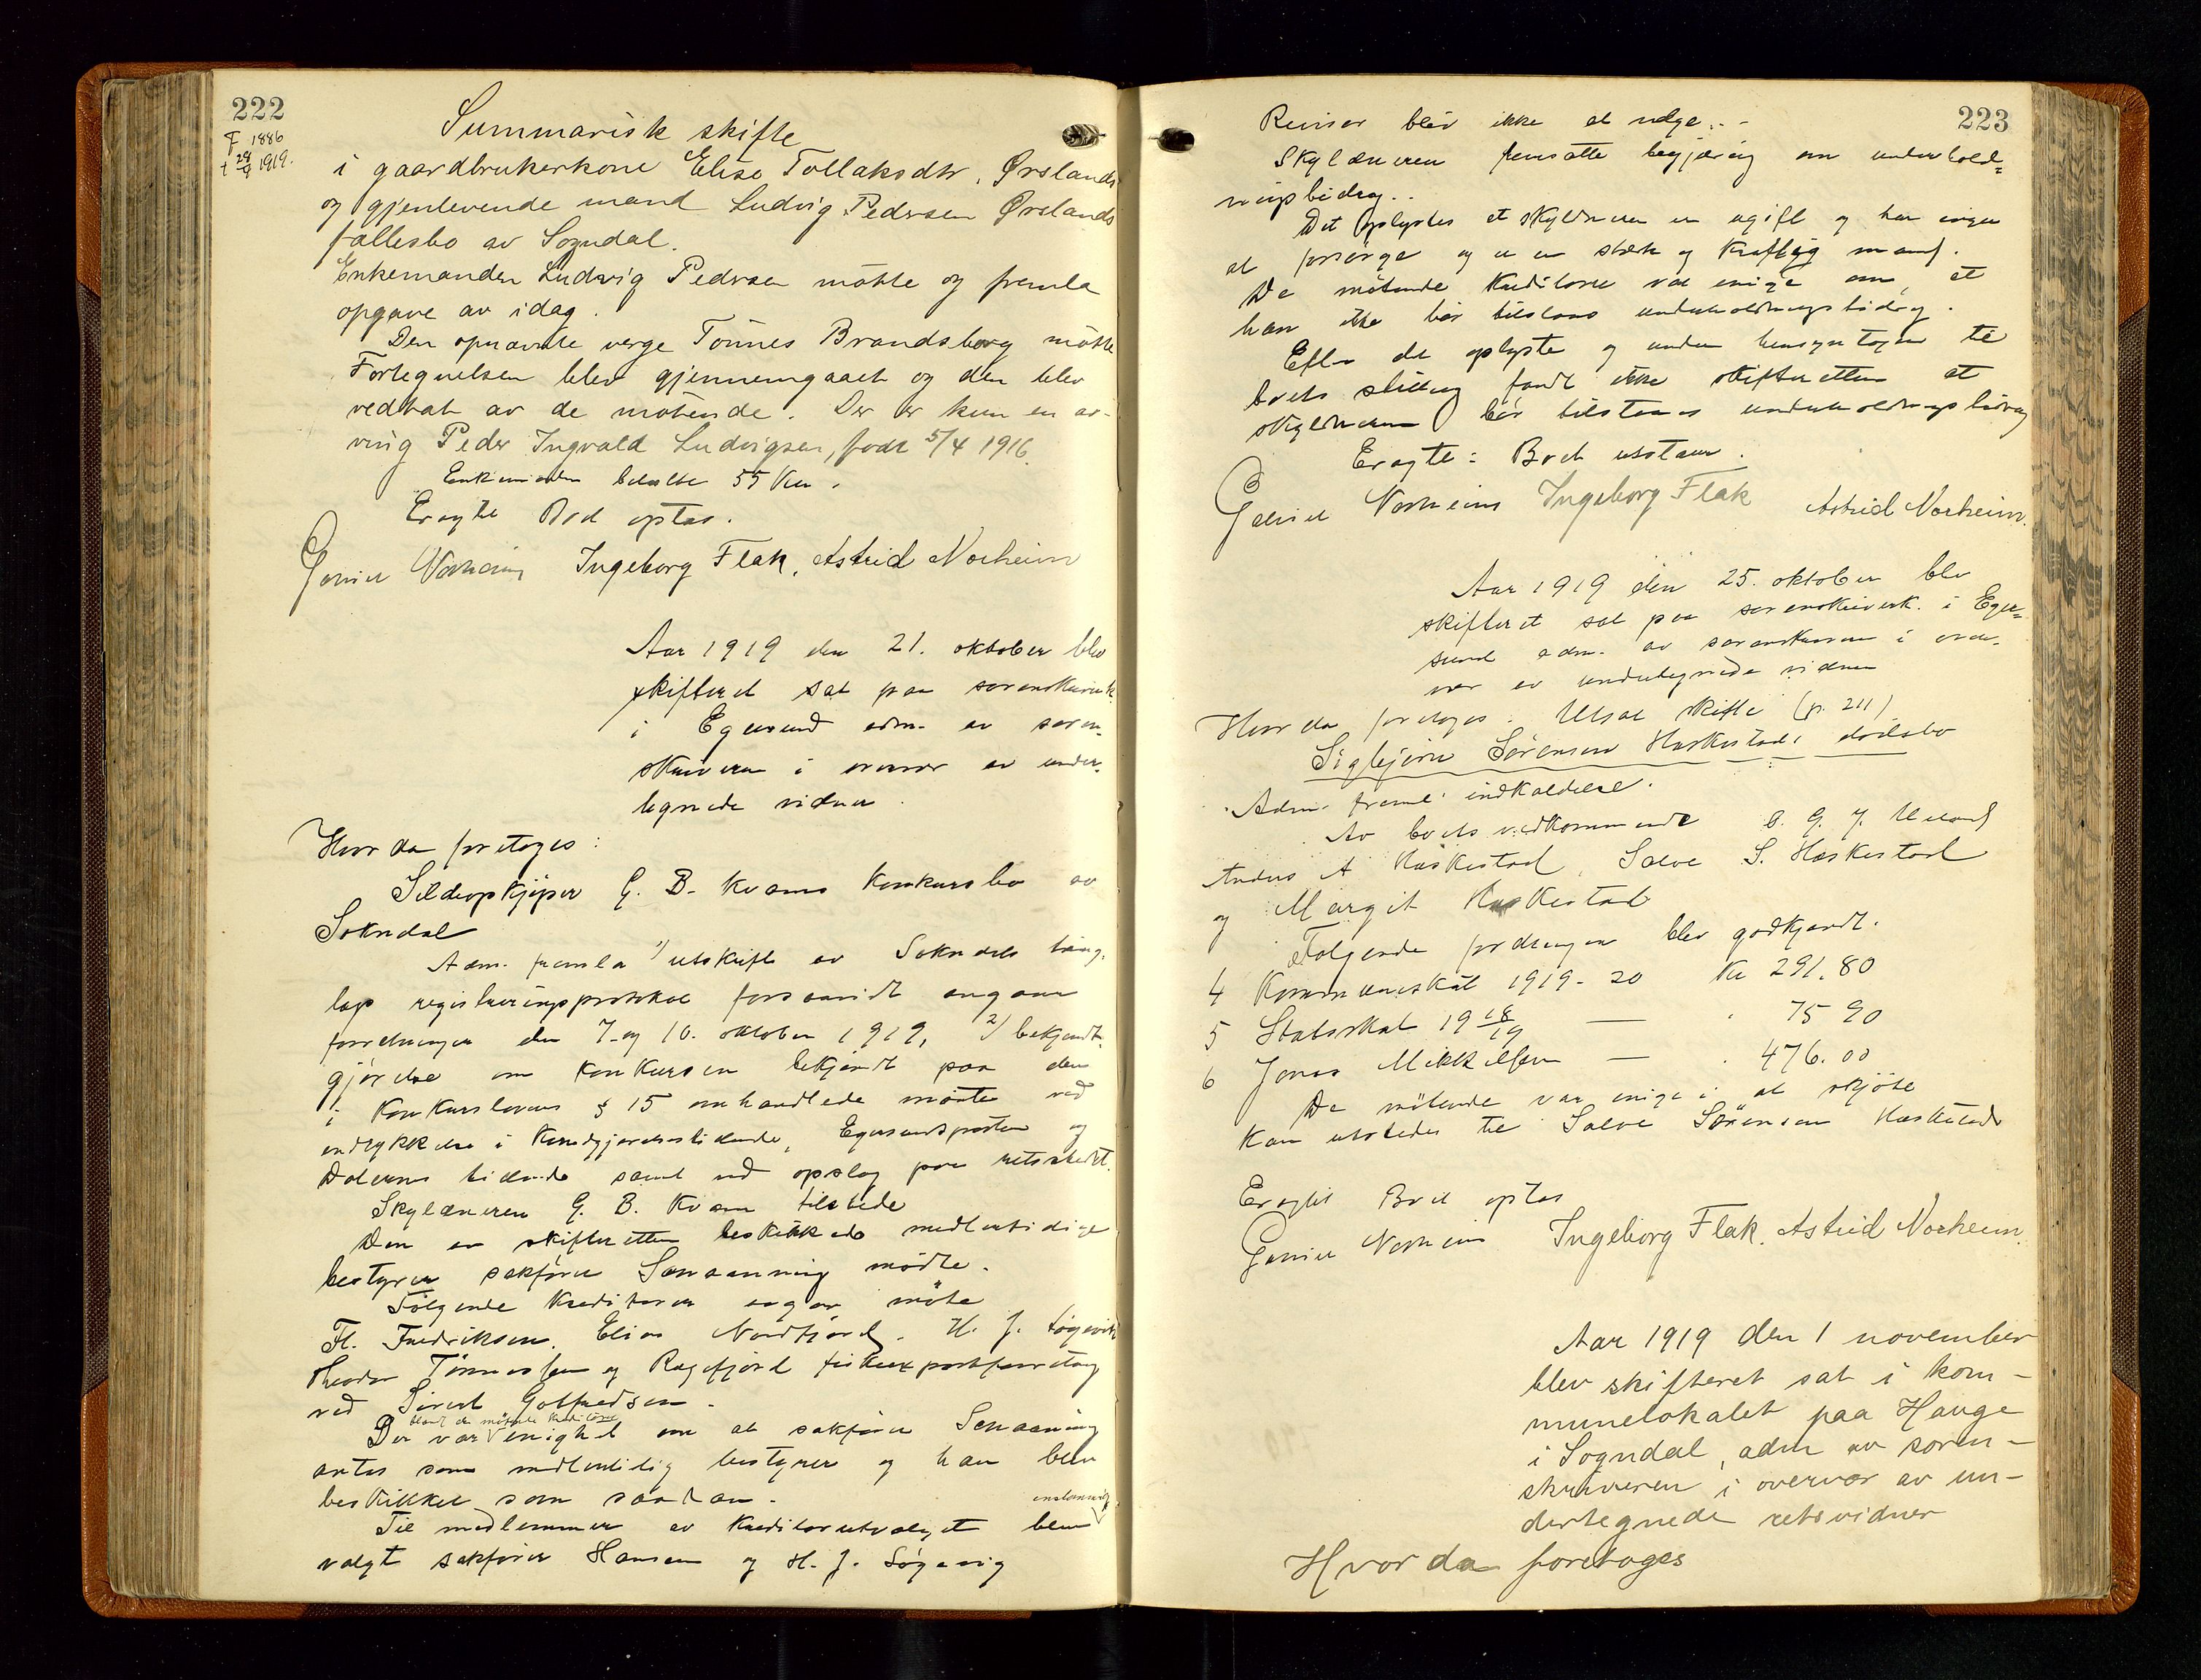 222
F 1886
† 29/9 1919.
Summarisk skifte
i gaardbrukerkone Elise Tollaksdtr. Ørslands
og gjenlevende mand Ludvig Pedersen Ørslands
fællesbo av Sogndal.
Enkemanden Ludvig Pedersen møtte og fremla
opgave av idag.
Den opnævnte verge Tönnes Brandsberg møtte
Fortegnelsen blev gjennemgaaet og den blev
vedtat av de møtende. Der er kun en ar-
ving Peder Ingvald Ludvigsen, født 5/4 1916.
Enkemanden betalte 55 Kr.
Eragtet Boet optas.
Gabriel Norheim Ingeborg Flak, Astrid Norheim
Aar 1919 den 21. oktober blev
skifteret sat paa sorenskriverk.
i Egersund adm. av soren-
skriveren i overvær av under-
tegnede vidner.
Hvor da foretoges:
Sildeopkjøper G. B. Kvams konkursbo av
Sokndal
Adm. fremla 1/ utskrift av Sokndals ting-
lags registreringsprotokol forsaavidt angaar
forretninger den 7. og 10. oktober 1919, 2/ bekjendt-
gjørelse om konkursen bekjendt paa den
i Konkurslovens § 15 omhandlede maate ved
indrykkelse i Kundgjørelsestidende, Egersundsposten og
Dalernes tidende samt ved opslag paa retsstedet.
Skyldneren G. B. Kvam tilstede
Den av skifteretten beskikkede midlertidige
bestyrer sakfører Schaanning mødte.
Følgende kreditorer avgav møte
Fl. Fredriksen, Elias Nordfjord, H. J. Løgevik
Theodor Tönnessen og Rægefjord fiskeexportforretning
ved Sivert Gotfredsen.
blandt de møtende kreditorer
Der var enighet om at sakfører Schaaning
antas som midlertidig bestyrer og han blev
beskikket som saadan.
enstemmig
Til medlemmer av kreditorutvalget blev
valgt sakfører Hansen og H. J. Løgevig
223
Revisor blev ikke at vælge. -
Skyldneren fremsatte begjæring om underhold-
ningsbidrag.
Det oplystes at skyldneren er ugift og har ingen
at forsørge og er en sterk og kraftig mand.
De møtende kreditorer var enige om, at
han ikke bør tilstaaes underholdningsbidrag.
Efter det oplyste og under hensyntagen til
boets stilling fandt ikke skifteretten at
skyldneren bør tilstaaes underholdningsbidrag
Eragtet: Boet utstaar.
Gabriel Norheim Ingeborg Flak Astrid Norheim.
Aar 1919 den 25. oktober blev
skifteret sat paa sorenskriverk. i Eger-
sund adm. av sorenskriveren i over-
vær av undertegnede vidner
Hvor da foretoges: Utsat skifte (p. 211)
Sigbjørn Sørensen Haskestads dødsbo
Adm. freml. indkaldelse.
Av boets vedkommende
Anders A Haskestad, Salve S. Haskestad
og Margit Haskestad
Følgende fordringer blev godkjendt.
4 Kommuneskat 1919-20 Kr 291.80
5 Statsskat 19 18/19 — 75 90
6 Jonas Mikkelsen — 476.00
De møtende var enige i at skjøte
kan utstedes til Salve Sørensen Haskestad
Eragtet Boet optas
Gabriel Norheim Ingeborg Flak. Astrid Norheim.
Aar 1919 den 1 november
blev skifteret sat i kom-
munelokalet paa Hauge
i Sogndal, adm av soren-
skriveren i overvær av un-
dertegnede retsvidner
Hvor da foretoges